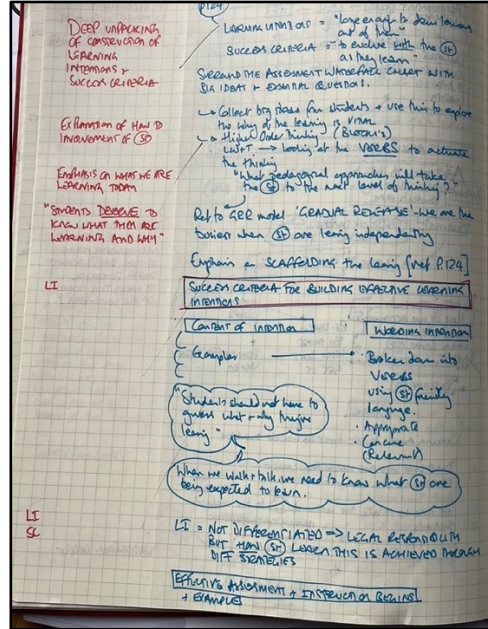 p124
DEEP UNPACKING
OF CONSTRUCTION OF
LEARNING
INTENTIONS +
SUCCESS CRITERIA
EXPLANATION OF HOW TO
INVOLVEMENT OF (St)
EMPHASIS ON WHAT WE ARE
LEARNING TODAY
"STUDENTS DESERVE TO
KNOW WHAT THEY ARE
LEARNING AND WHY"
LI
LI
SC
LEARNING INTENTIONS = "large enough to draw lessons
out of them"
SUCCESS CRITERIA = to evolve with the (St)
as they learn"
SURROUND THE ASSESSMENT WATERFALL CHART WITH
BIG IDEAS + ESSENTIAL QUESTIONS.
→ Collect big ideas from students + use this to explore
the why of the learning is VITAL
→ Higher Order Thinking (BLOOM'S)
→ looking at the VERBS to activate
the thinking
"What pedagogical approaches will take
the (St) to the next level of thinking?"
Ref to GRR model 'GRADUAL RELEASE' - we are the
busiest when (St) are learning independently
Emphasis on SCAFFOLDING the learning [ref P.124]
SUCCESS CRITERIA FOR BUILDING EFFECTIVE LEARNING
INTENTIONS
CONTENT OF INTENTION
Examples
WORDING INTENTION
• Broken down into
VERBS
using (St) friendly
language.
• Appropriate
• Concise
(Relevant)
"Students should not have to
guess what + why they're
learning"
When we walk + talk, we need to know what (St) are
being expected to learn.
LI = NOT DIFFERENTIATED => LEGAL RESPONSIBILITY
BUT HOW (St) LEARN THIS IS ACHIEVED THROUGH
DIFF STRATEGIES
EFFECTIVE ASSESSMENT + INSTRUCTION BEGINS
+ EXAMPLES